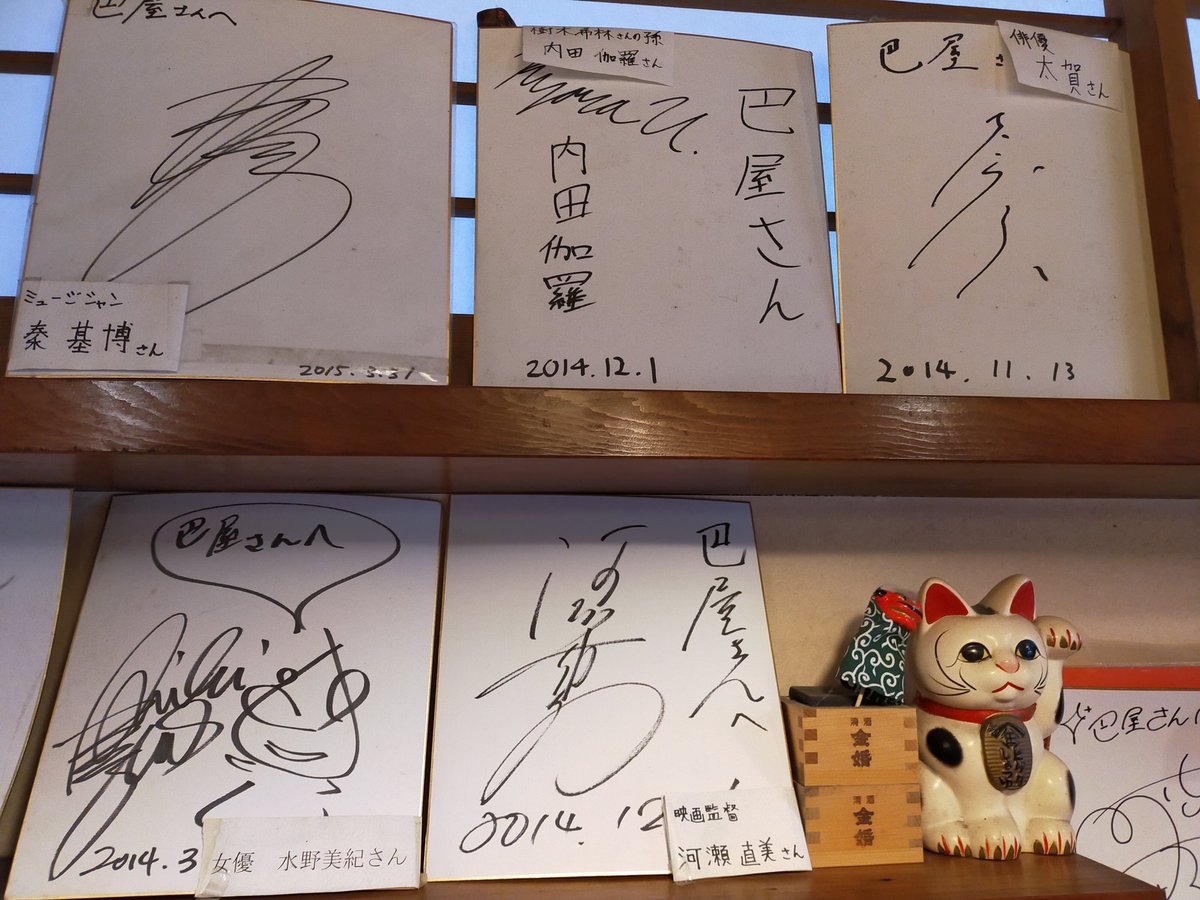 巴屋さんへ
ミュージシャン
秦 基博さん
2015.3.31
樹木希林さんの孫
内田 伽羅さん
巴屋さん
内田伽羅
2014.12.1
俳優
太賀さん
巴屋さ
2014.11.13
巴屋さんへ
2014.3
女優 水野美紀さん
巴屋さんへ
河瀬
2014.12
映画監督
河瀬 直美さん
清酒
金婚
清酒
金婚
巴屋さん